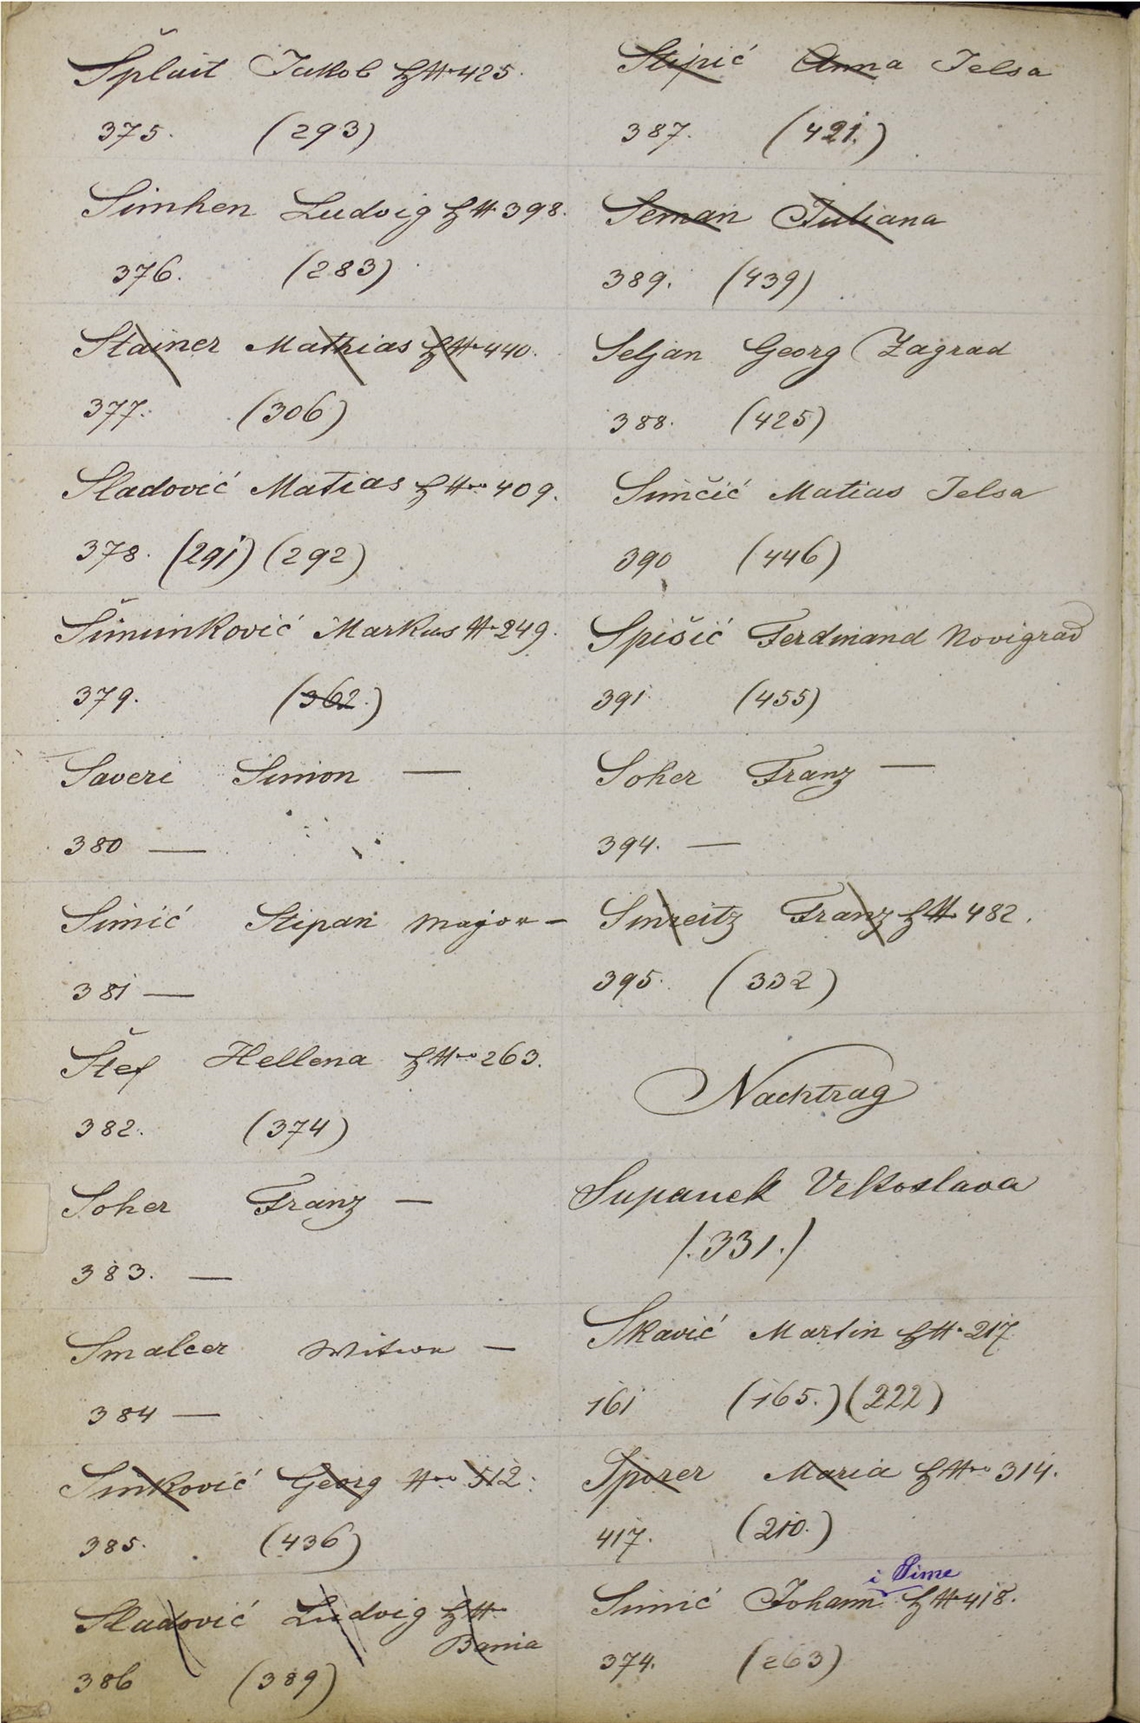 Šplait Jakob HN 425.
375. (293)
Simhen Ludvig HN 398.
376. (283)
Stainer Mathias HN 440.
377. (306)
Sladović Matias HNo 409.
378. (291) (292)
Šimunković Markus N 249.
379. (362.)
Saveri Simon —
380 —
Simić Stipan Major —
381 —
Štef Hellena HNo 263.
382. (374)
Soher Franz —
383. —
Smalcer Witwe —
384 —
Sinković Georg No 512.
385. (436)
Sladović Ludvig HN
Bania
386 (389)
Stipić Anna Jelsa
387. (421.)
Seman Juliana
389. (439)
Seljan Georg Zagrad
388. (425)
Simčić Matias Jelsa
390 (446)
Spišić Ferdinand Novigrad
391. (455)
Soher Franz —
394. —
Smreitz Franz HN 482.
395. (332)
Nachtrag
Supanek Vekoslava
/.331./
Skavić Martin HN 217
161 (165.) (222)
Sporer Maria HNo 314.
417. (210.)
i Sime
Simić Johann HN 418.
374. (263)